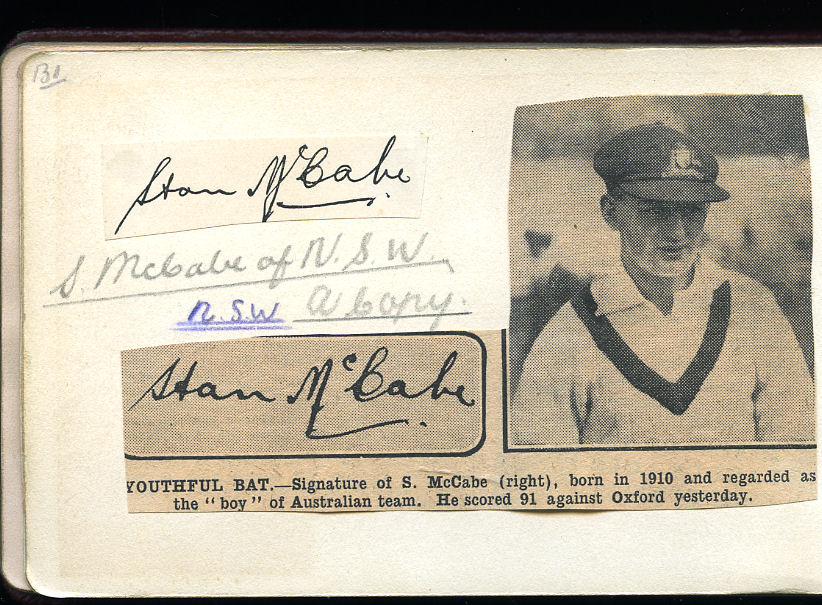 Stan McCabe
S. McCabe of N.S.W.
N.S.W A Copy.
Stan McCabe
YOUTHFUL BAT.—Signature of S. McCabe (right), born in 1910 and regarded as
the "boy" of Australian team. He scored 91 against Oxford yesterday.